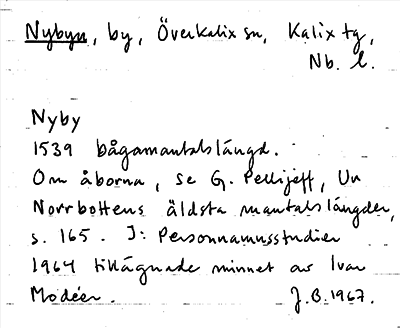 Nybyn, by, Överkalix sn, Kalix tg,
Nb. l.
Nyby
1539 bågamantalslängd.
Om åborna, se G. Pellijeff, Ur
Norrbottens äldsta mantalslängder,
s. 165. I: Personnamnsstudier
1964 tillägnade minnet av Ivar
Modéer.
J.B. 1967.